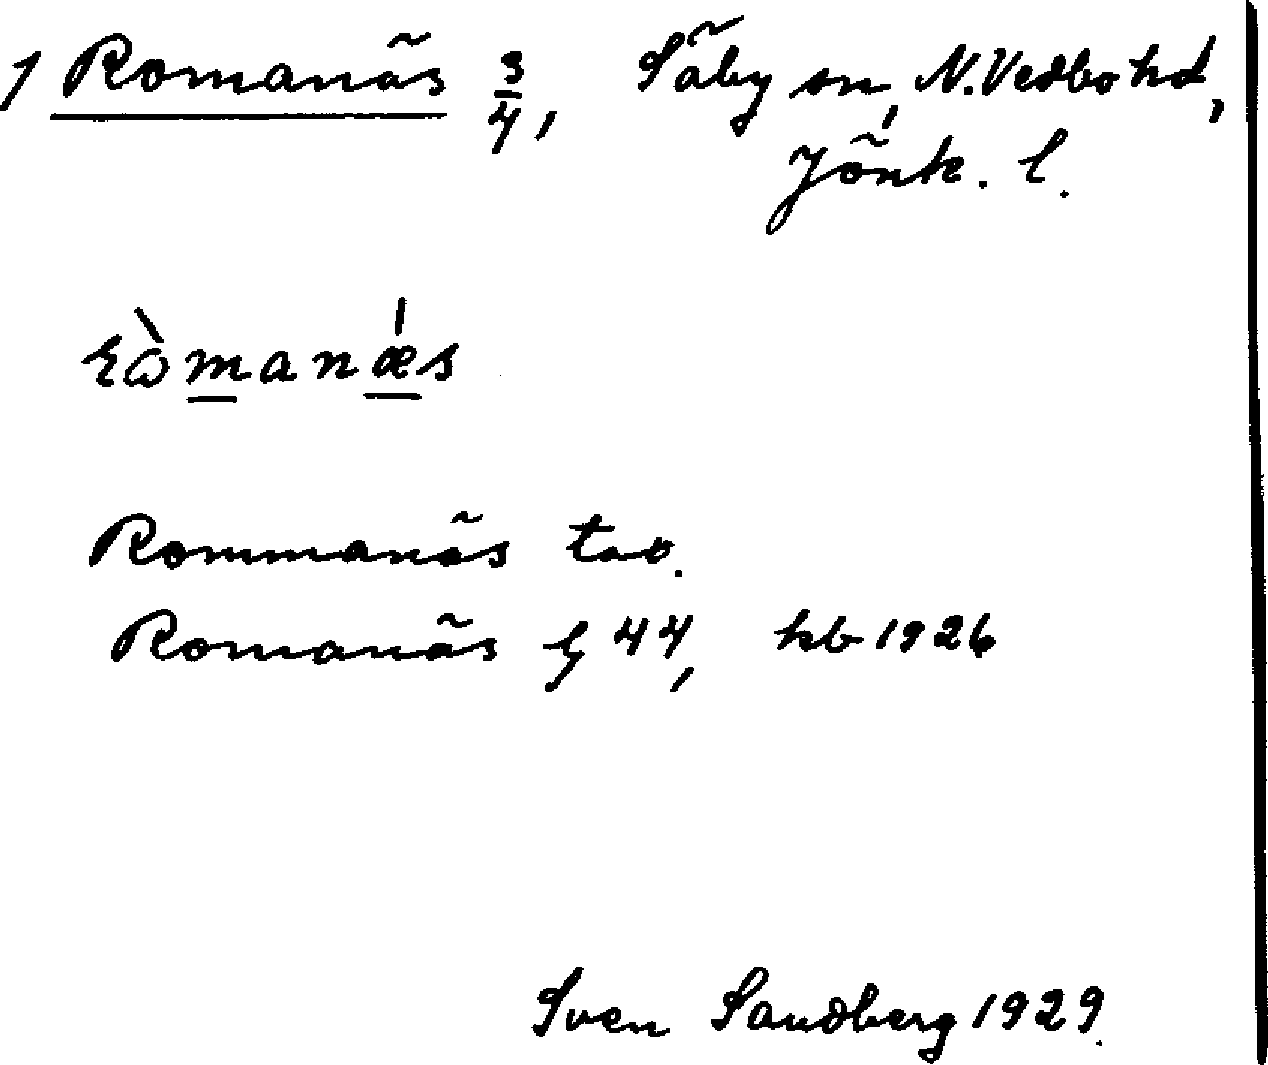 1 Romanäs 3/4, Säby sn, N. Vedbo hd,
Jönk. l.
ròmanǽs
Rommanäs tao.
Romanäs G 44, kb 1926
Sven Sandberg 1929.